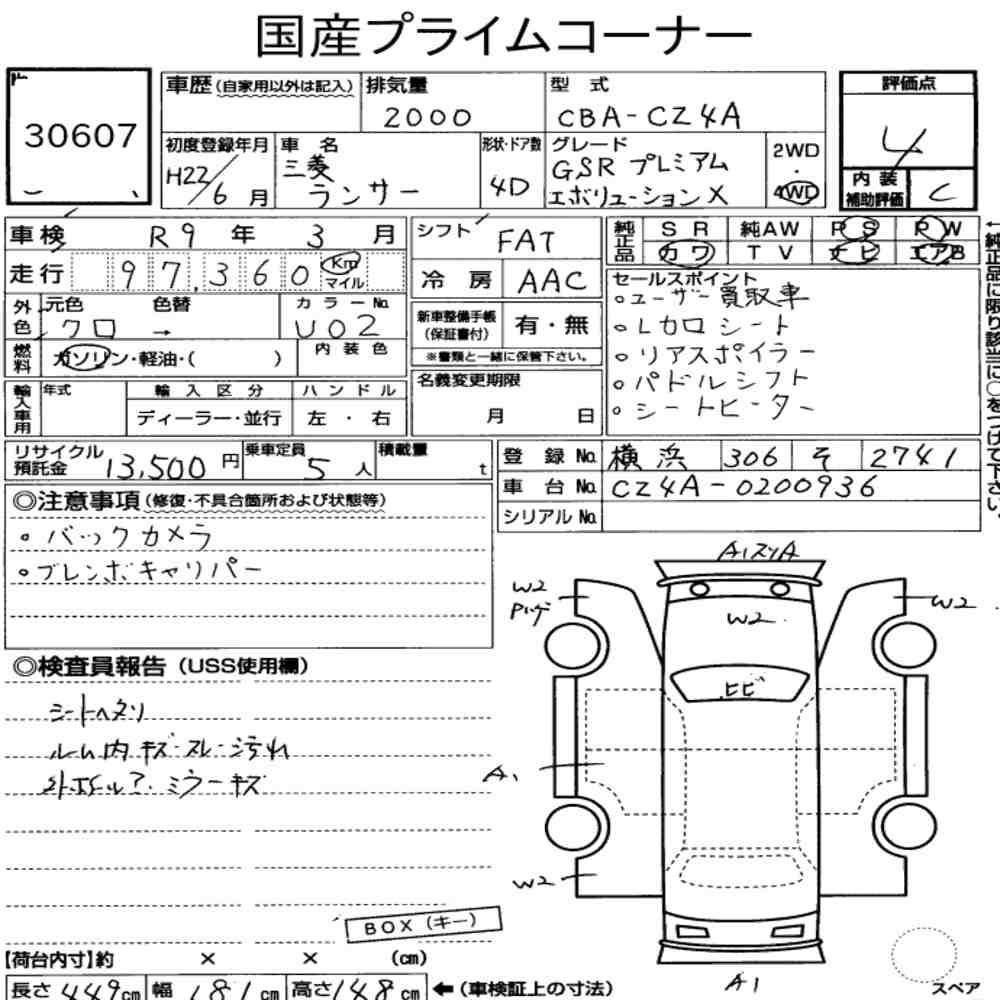 国産プライムコーナー
30607
車歴(自家用以外は記入)
排気量
2000
型式
CBA-CZ4A
評価点
4
内装補助評価
C
初度登録年月
H22/6月
車名
三菱
ランサー
形状・ドア数
4D
グレード
GSR プレミアム
エボリューションX
2WD
・
4WD
車検
R9年3月
走行
97,360
Km
マイル
シフト
FAT
冷房
AAC
純正品
SR 純AW PS PW
カワ TV ナビ エアB
←純正品に限り該当に○をつけて下さい。
外色
元色
色替
クロ →
カラーNo.
U02
燃料
ガソリン・軽油・( )
内装色
新車整備手帳
(保証書付)
有・無
※書類と一緒に保管下さい。
セールスポイント
○ユーザー買取車
○レカロシート
○リアスポイラー
○パドルシフト
○シートヒーター
輸入車用
年式
輸入区分
ハンドル
ディーラー・並行
左・右
名義変更期限
月 日
リサイクル預託金
13,500円
乗車定員
5人
積載量
t
登録No.
横浜 306 そ 2741
車台No.
CZ4A-0200936
シリアルNo.
◎注意事項(修復・不具合箇所および状態等)
○バックカメラ
○ブレンボキャリパー
◎検査員報告(USS使用欄)
シートヘタリ
ルーム内キズ・スレ・汚れ
ミラーキズ
W2
W2
W2
ヒビ
A1
W2
A1
BOX(キー)
スペア
【荷台内寸】約 × × (cm)
長さ449cm
幅181cm
高さ148cm
←(車検証上の寸法)